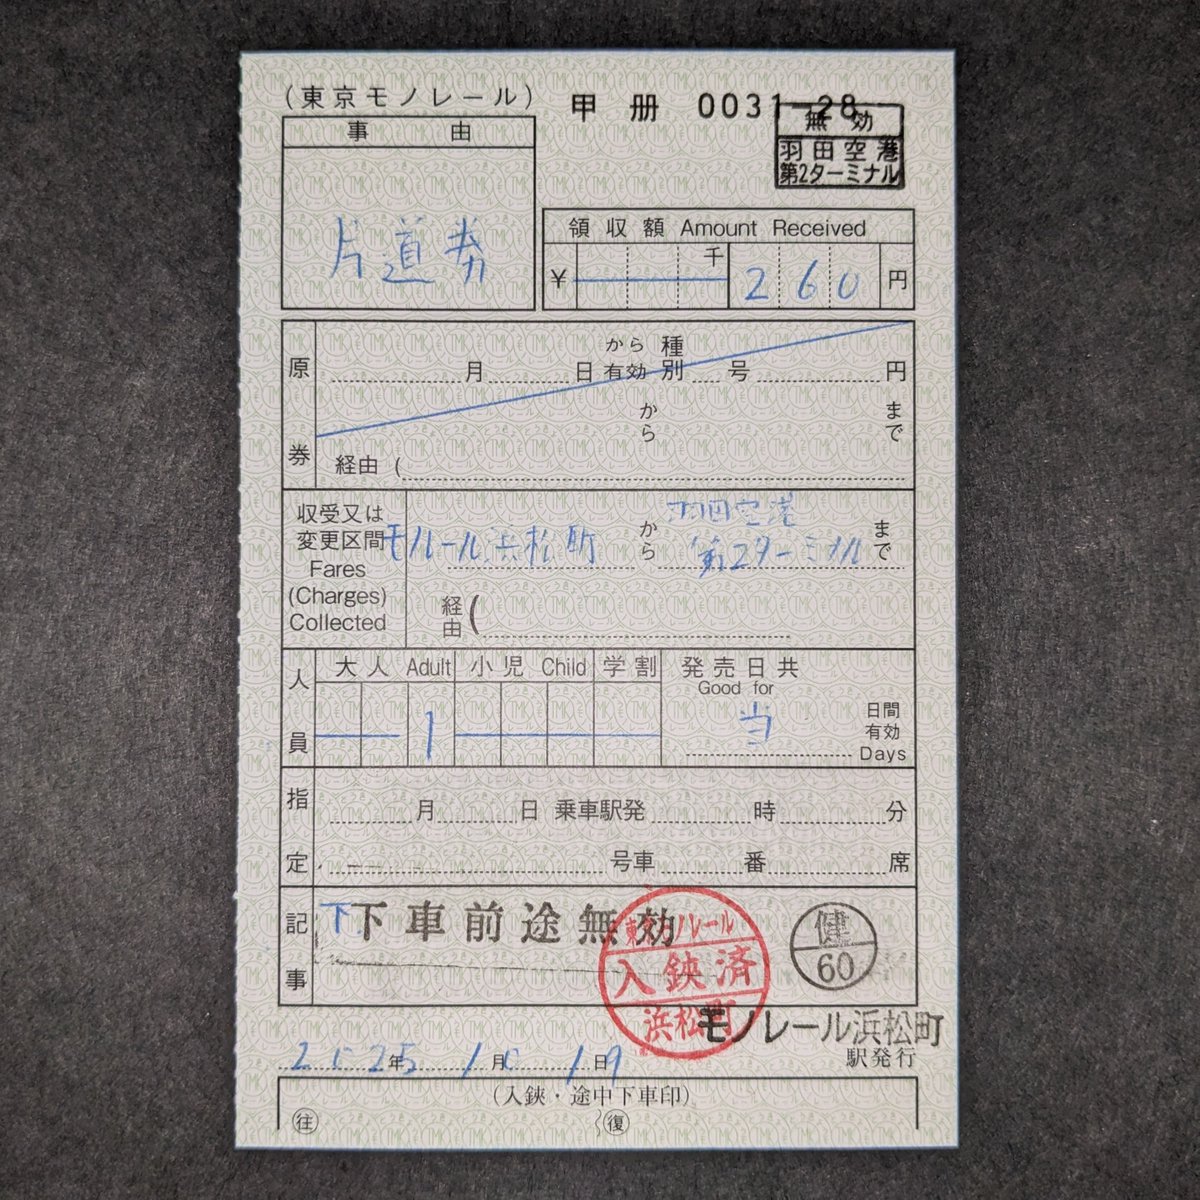 (東京モノレール)
甲 册 0031-28
無効
羽田空港
第2ターミナル
事由
片道券
領収額 Amount Received
千
¥ 260 円
原券
月 日 から有効 種別 号 円
から まで
経由 (
収受又は
変更区間
Fares
(Charges)
Collected
モノレール浜松町 から 羽田空港
第2ターミナル まで
経由 (
人員
大人 Adult 小児 Child 学割 発売日共
Good for
1 当 日間
有効
Days
指定
月 日 乗車駅発 時 分
号車 番 席
記事
下 下車前途無効
東京モノレール
入鋏済
浜松町
健
60
モノレール浜松町
駅発行
2025年 10月 19日
(入鋏・途中下車印)
往 復